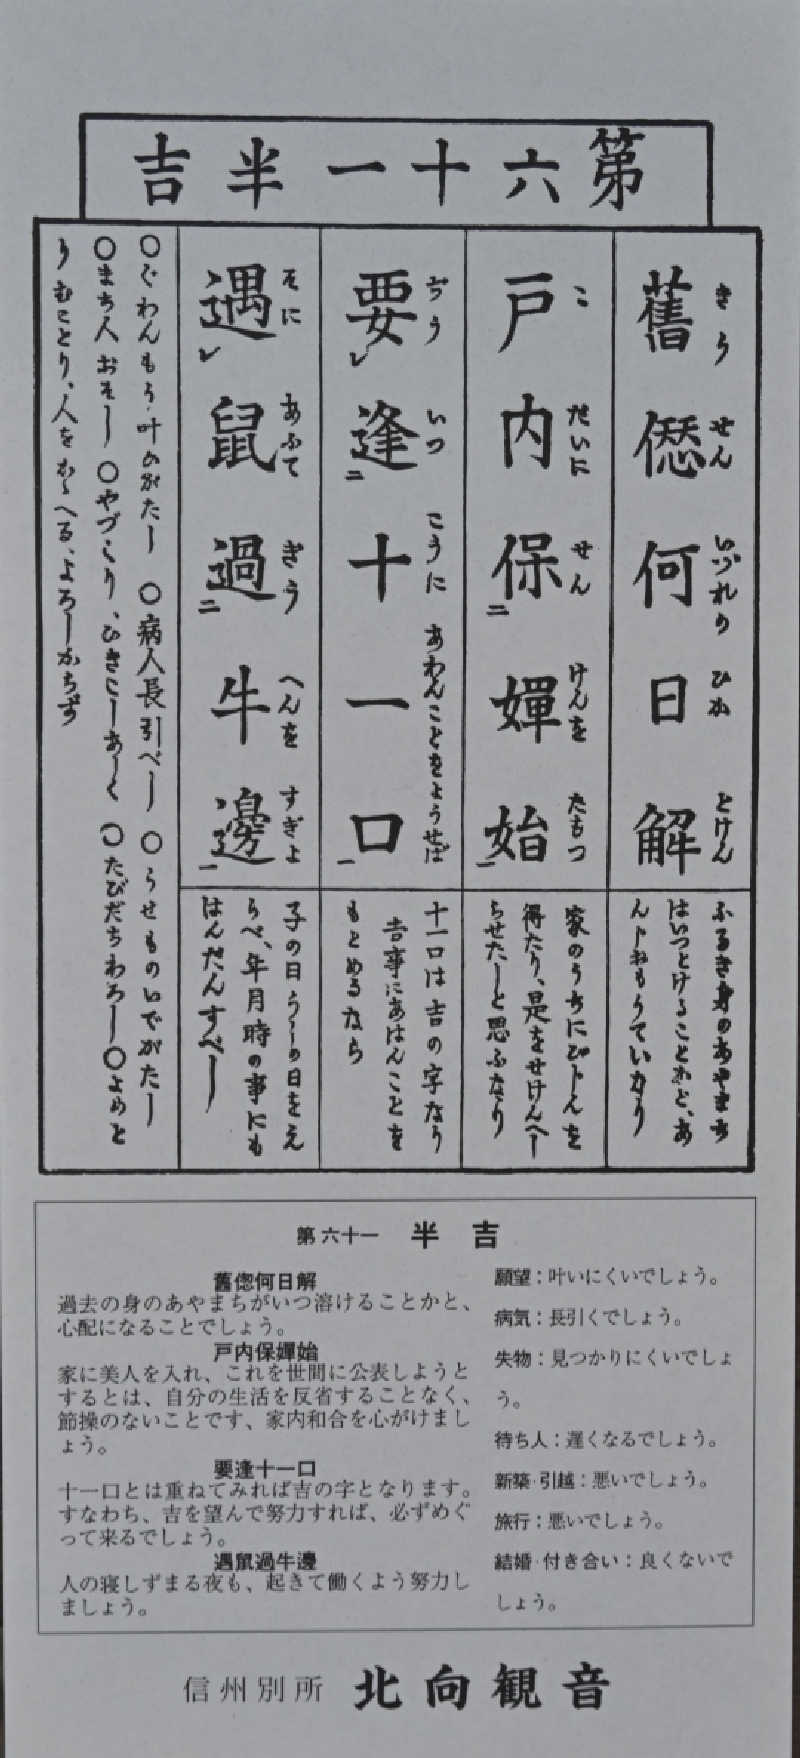 第六十一半吉
舊愆何日解
きう せん いづれの ひか とけん
ふるき身のあやまち
はいつとけることかと、あ
んじおもうていなり
戸内保嬋始
こ だいに せん けんを たもつ
家のうちにびじんを
得たり、是をせけんへ
しらせたしと思ふなり
要逢十一口
いつ こうに あわんことをようせば
十一口は吉の字なり
吉事にあはんことを
もとめるなら
遇鼠過牛邊
そに あふて ぎう へんを すぎよ
子の日うしの日をえ
らべ、年月時の事にも
はんだんすべし
〇ぐわんもう叶ひがたし 〇病人長引べし 〇うせものいでがたし
〇まち人おそし 〇やづくり、ひきこしあしく 〇たびだちわろし〇よめと
りむことり、人をかゝへる、よろしからず
第六十一 半吉
舊愡何日解
過去の身のあやまちがいつ溶けることかと、
心配になることでしょう。
戸内保嬋始
家に美人を入れ、これを世間に公表しようと
するとは、自分の生活を反省することなく、
節操のないことです、家内和合を心がけまし
ょう。
要逢十一口
十一口とは重ねてみれば吉の字となります。
すなわち、吉を望んで努力すれば、必ずめぐ
って来るでしょう。
遇鼠過牛邊
人の寝しずまる夜も、起きて働くよう努力し
ましょう。
願望：叶いにくいでしょう。
病気：長引くでしょう。
失物：見つかりにくいでしょ
う。
待ち人：遅くなるでしょう。
新築・引越：悪いでしょう。
旅行：悪いでしょう。
結婚・付き合い：良くないで
しょう。
信州別所 北向観音